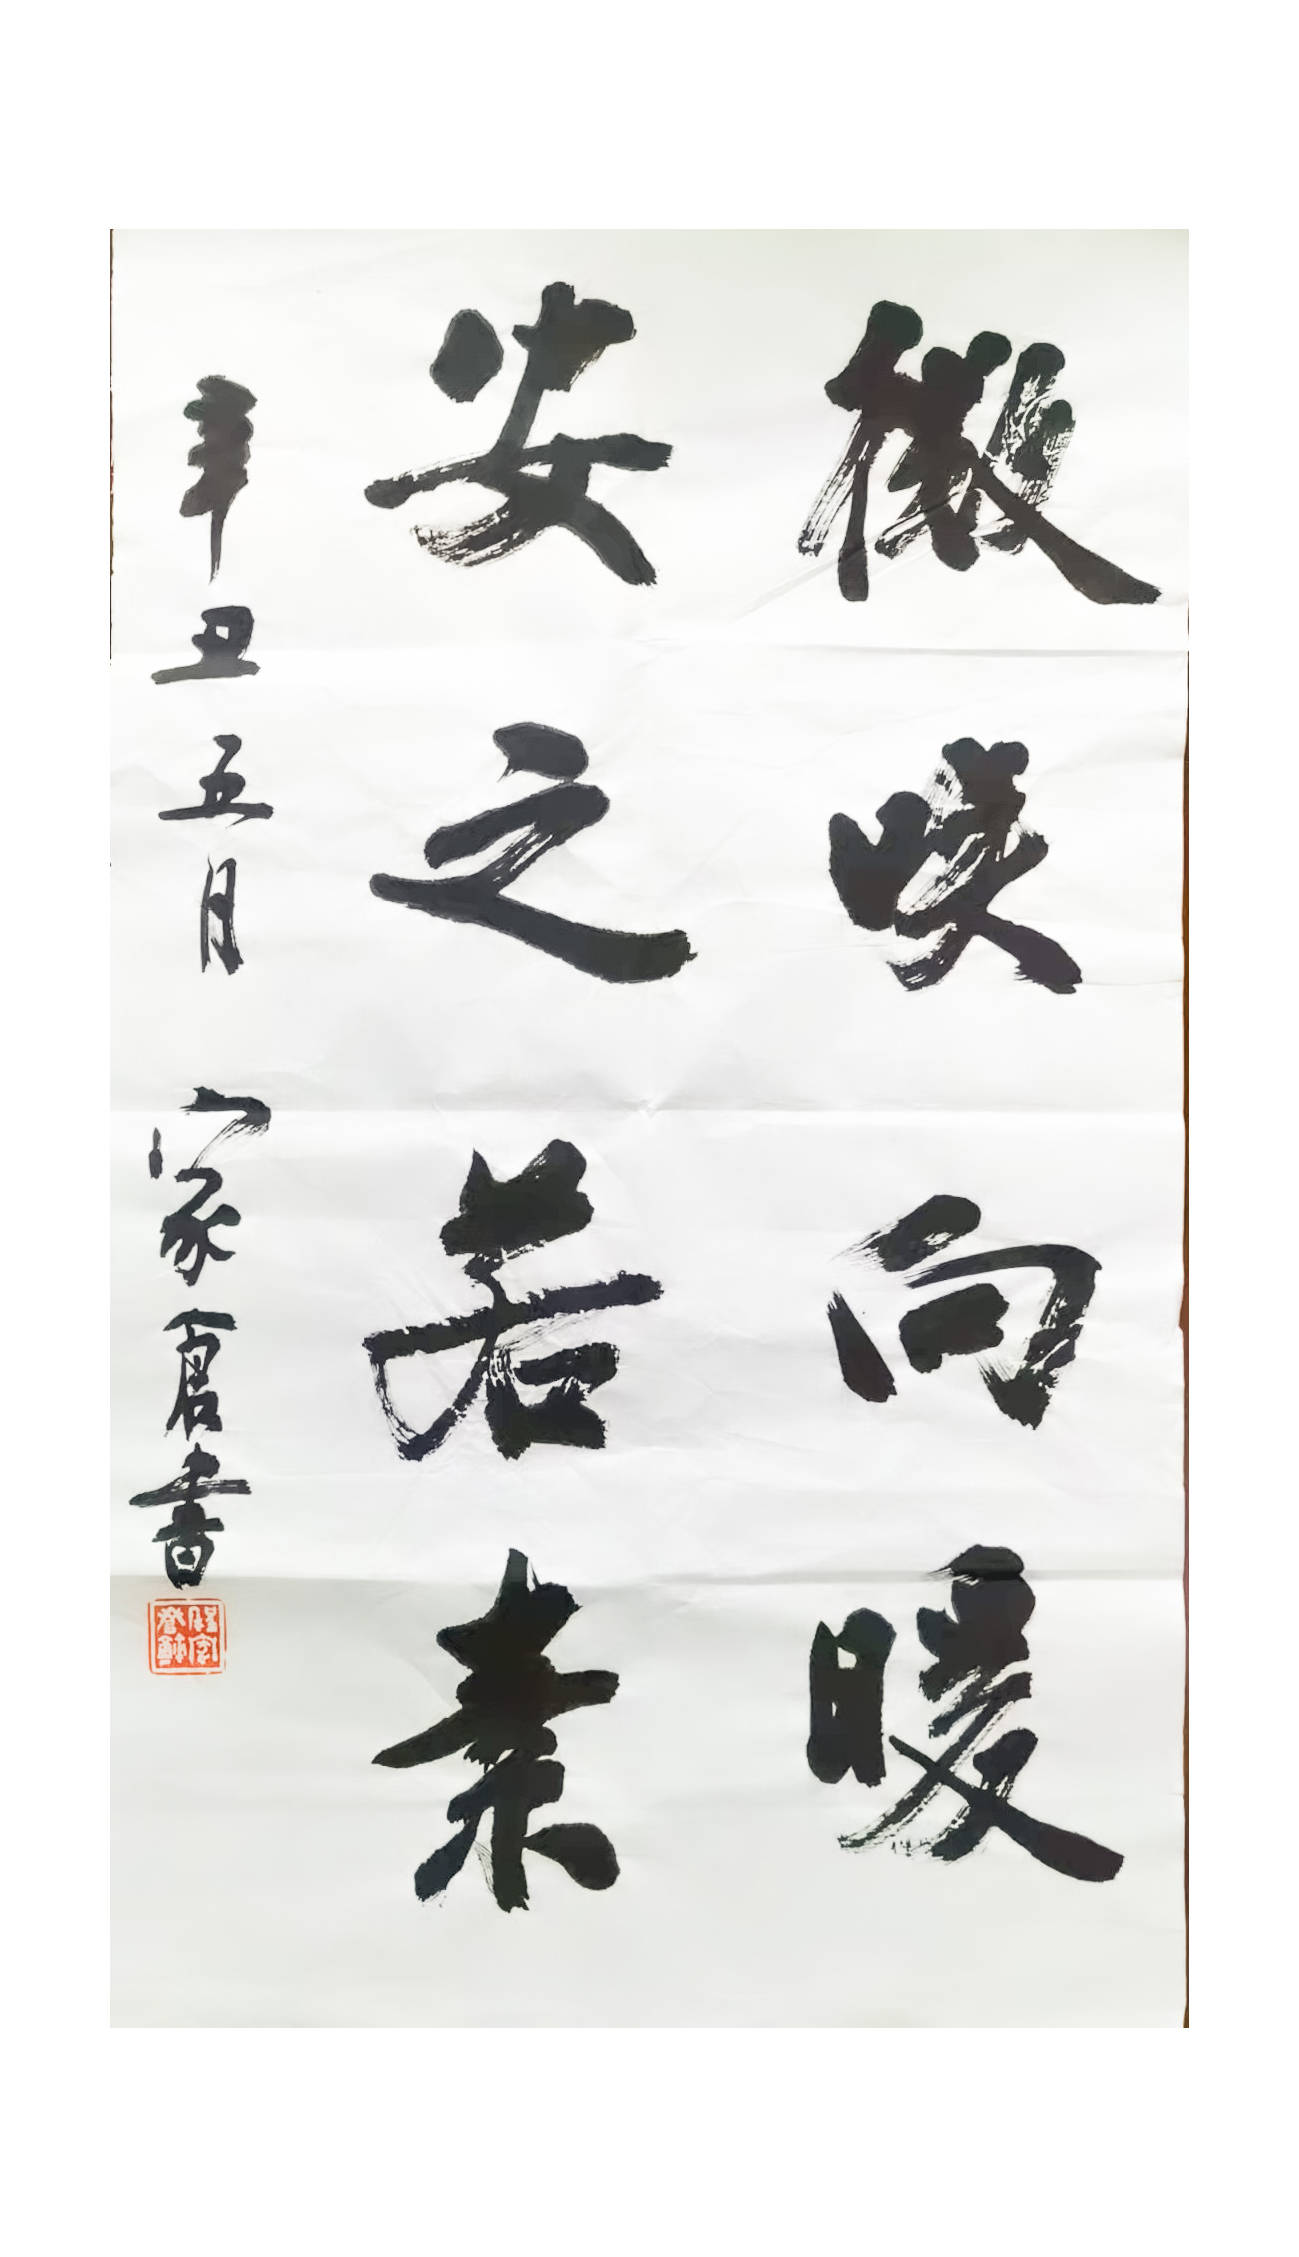 微笑向暖
安之若素
辛丑五月 家仓書